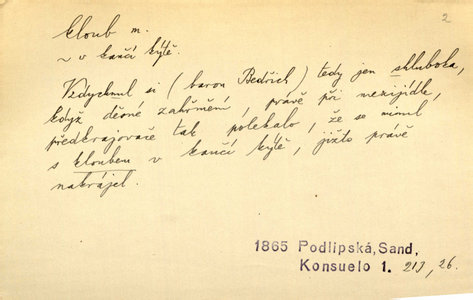 2
kloub m.
~ v kančí kýtě.
Vzdychnul si (baron Bedřich) tedy jen zhluboka,
když děsné zahřmění, právě při mezijídle,
předkrajovače tak polekalo, že se minul
s kloubem v kančí kýtě, jižto právě
nakrájel.
1865 Podlipská, Sand,
Konsuelo 1. 213, 26.